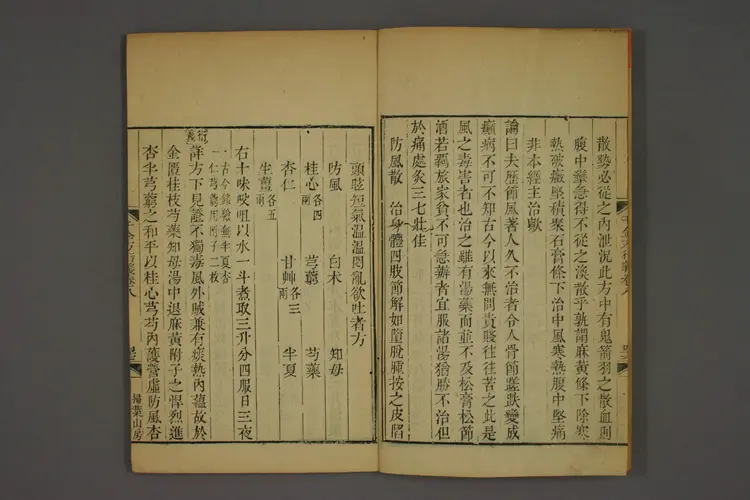 散勢必從之內泄況此方中有鬼箭羽之散血則
腹中攣急得不從之渙散乎孰謂麻黃條下除寒
熱破癥堅積聚石膏條下治中風寒熱腹中堅痛
非本經主治歟
論曰夫歷節風著人久不治者令人骨節蹉跌變成
癲病不可不知古今以來無問貴賤往往苦之此是
風之毒害者也治之雖有湯藥而並不及松膏松節
酒若羈旅家貧不可急辦者宜服諸湯猶勝不治但
於痛處灸三七壯佳
防風散 治身體四肢節解如墮脫腫按之皮陷
頭眩短氣溫溫悶亂欲吐者方
防風 白朮 知母
桂心各四兩 芎藭 芍藥
杏仁 甘艸各三兩 半夏
生薑各五兩
右十味㕮咀以水一斗煮取三升分四服日三夜
一古今錄驗無半夏杏仁芎藭用附子二枚
衍義
詳方下見證不獨毒風外賊兼有痰熱內蘊故於
金匱桂枝芍藥知母湯中退麻黃附子之悍烈進
杏半芎藭之和平以桂心芎芍內護營虛防風杏
千金方衍義卷八
掃葉山房